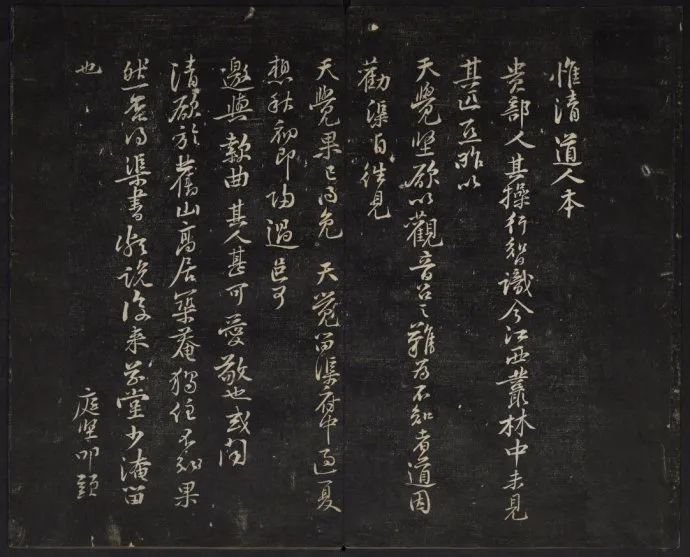 惟清道人本
貴部人其操行智識今江西叢林中未見
其匹亟昨以
天覺堅欲以觀音召之難為不知者道因
勸渠自往見
天覺果已得免 天覺留渠府中過夏
想秋初即歸過邑可
邀與款曲其人甚可愛敬也或聞
清欲於舊山高居築菴獨住不知果
然否得渠書頗說後來草堂少淹留
也
庭堅叩頭